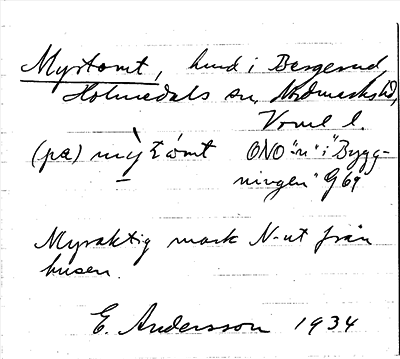 Myrtomt, lind i Bergerud,
Holmedals sn, Nordmarks hd,
Vrml l.
(på) mỳtomt ONO "n" i "Bygg-
ningen" G 69
Myraktig mark N-ut från
husen.
E. Andersson 1934